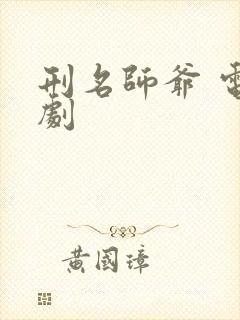 刑名師爺 電
劇
黃國璋